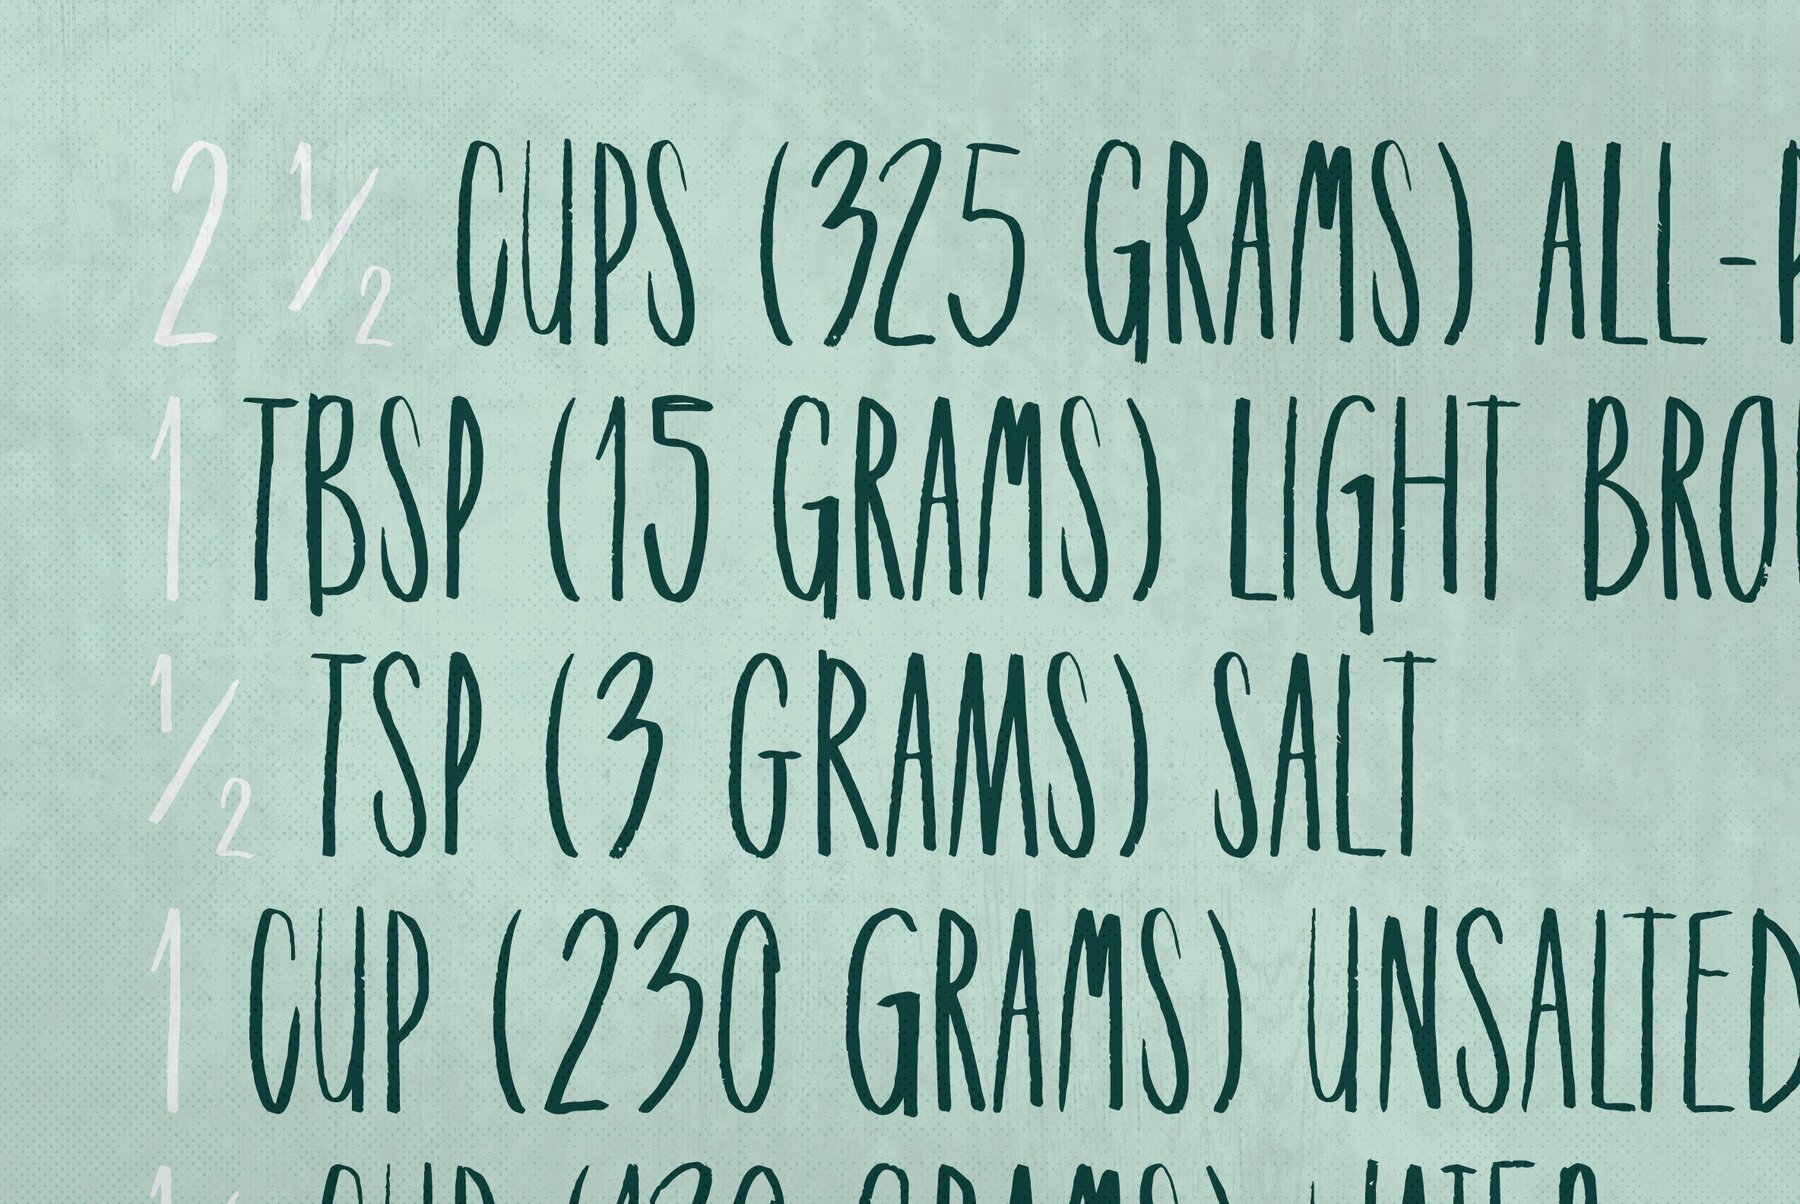 2 ½ CUPS (325 GRAMS) ALL-P
1 TBSP (15 GRAMS) LIGHT BRO
½ TSP (3 GRAMS) SALT
1 CUP (230 GRAMS) UNSALTED
CUP GRAMS) WATER